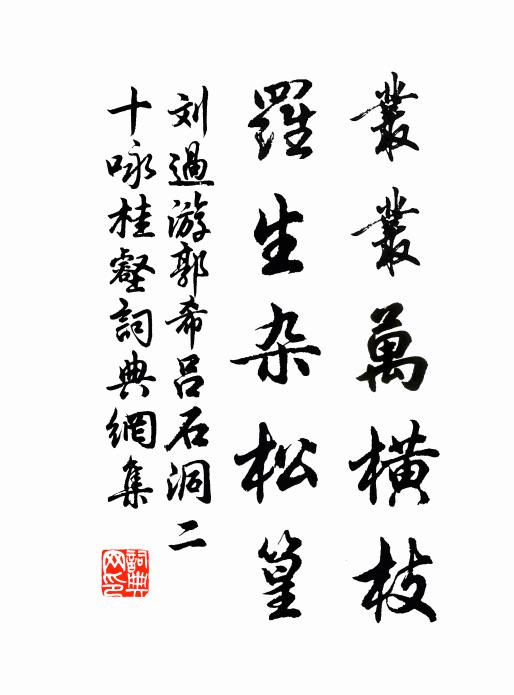 叢叢萬橫枝
羅生杂松篁
刘過游郭希吕石洞二
十咏桂壑詞典網集
詞典网印